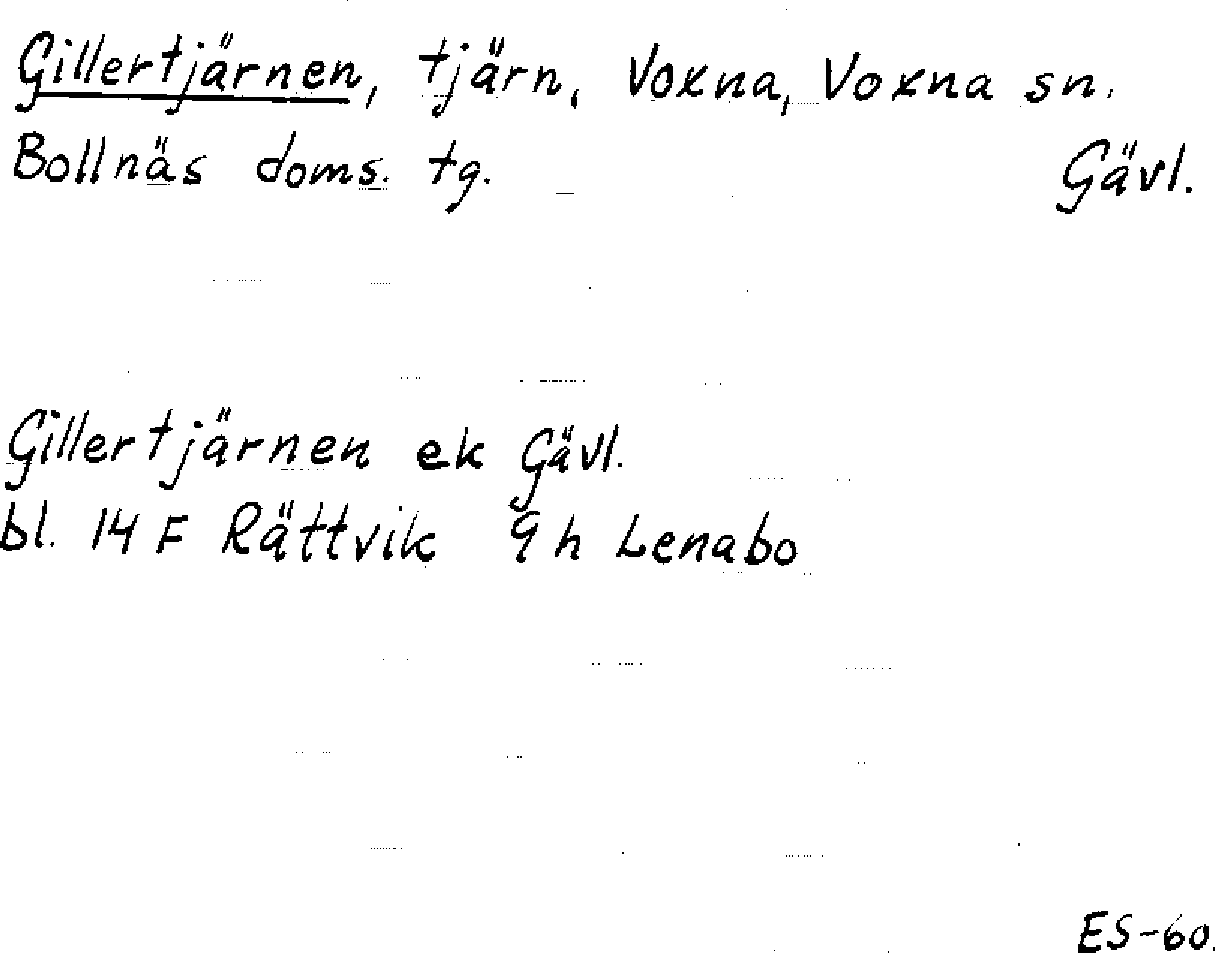 Gillertjärnen, tjärn, Voxna, Voxna sn.
Bollnäs doms. tg. Gävl.
Gillertjärnen ek Gävl.
bl. 14 F Rättvik 9 h Lenabo
ES-60.